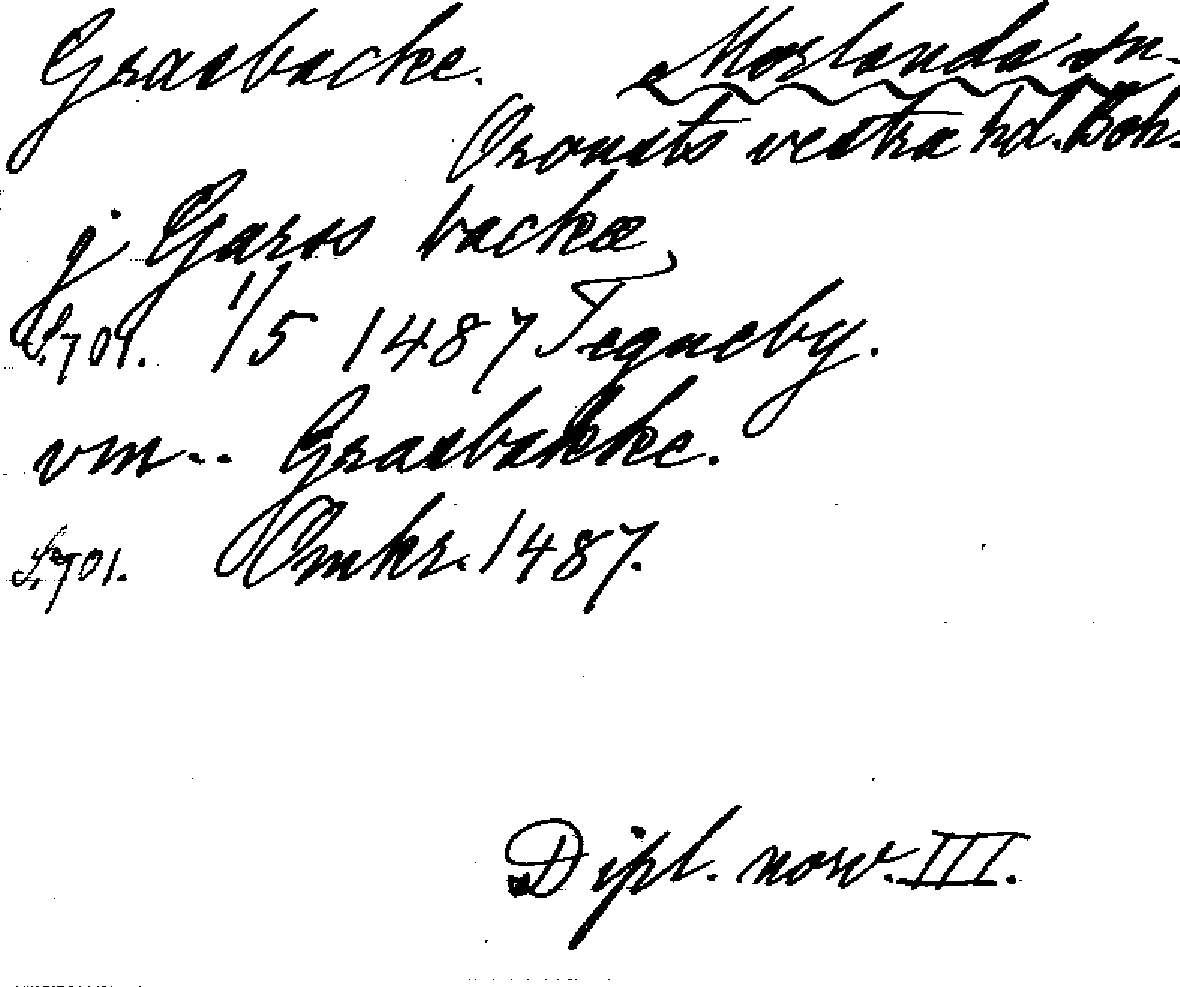 Grasbacke. Morlanda sn.
Orousts vestra hd. Boh.
j Garss backæ
S. 701. 1/5 1487 Tegneby.
vm-- Grasbakke.
S. 701. Omkr. 1487.
Dipl. norv. III.